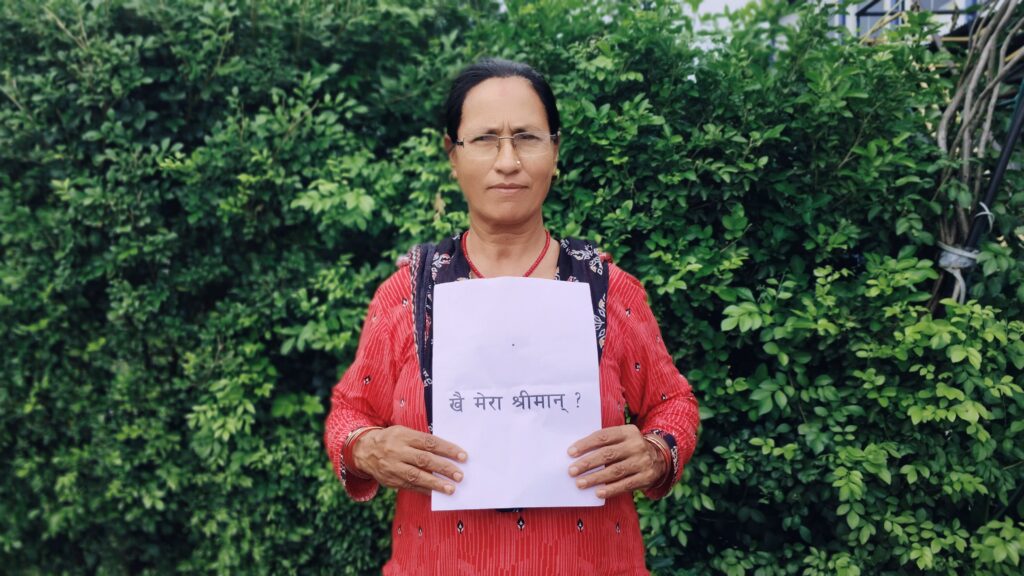 खै मेरा श्रीमान् ?